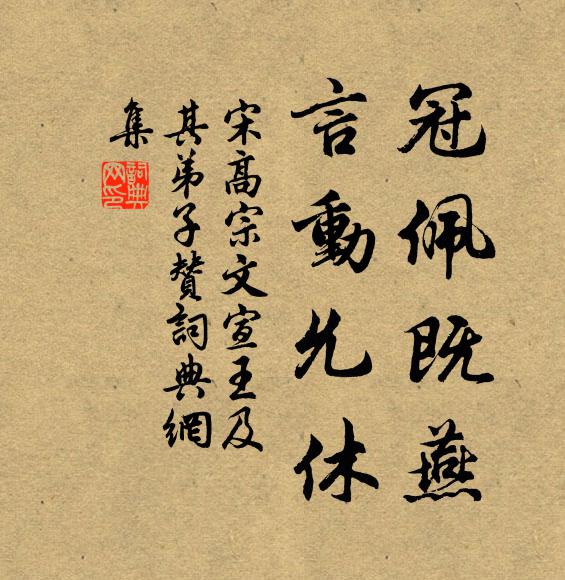 冠佩既燕
言動允休
宋高宗文宣王及
其弟子贊詞典網
集
詞典网印